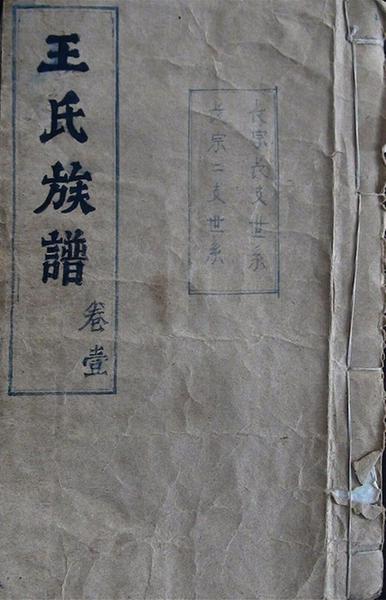 王氏族譜
卷壹
長宗長支世系
長宗二支世系